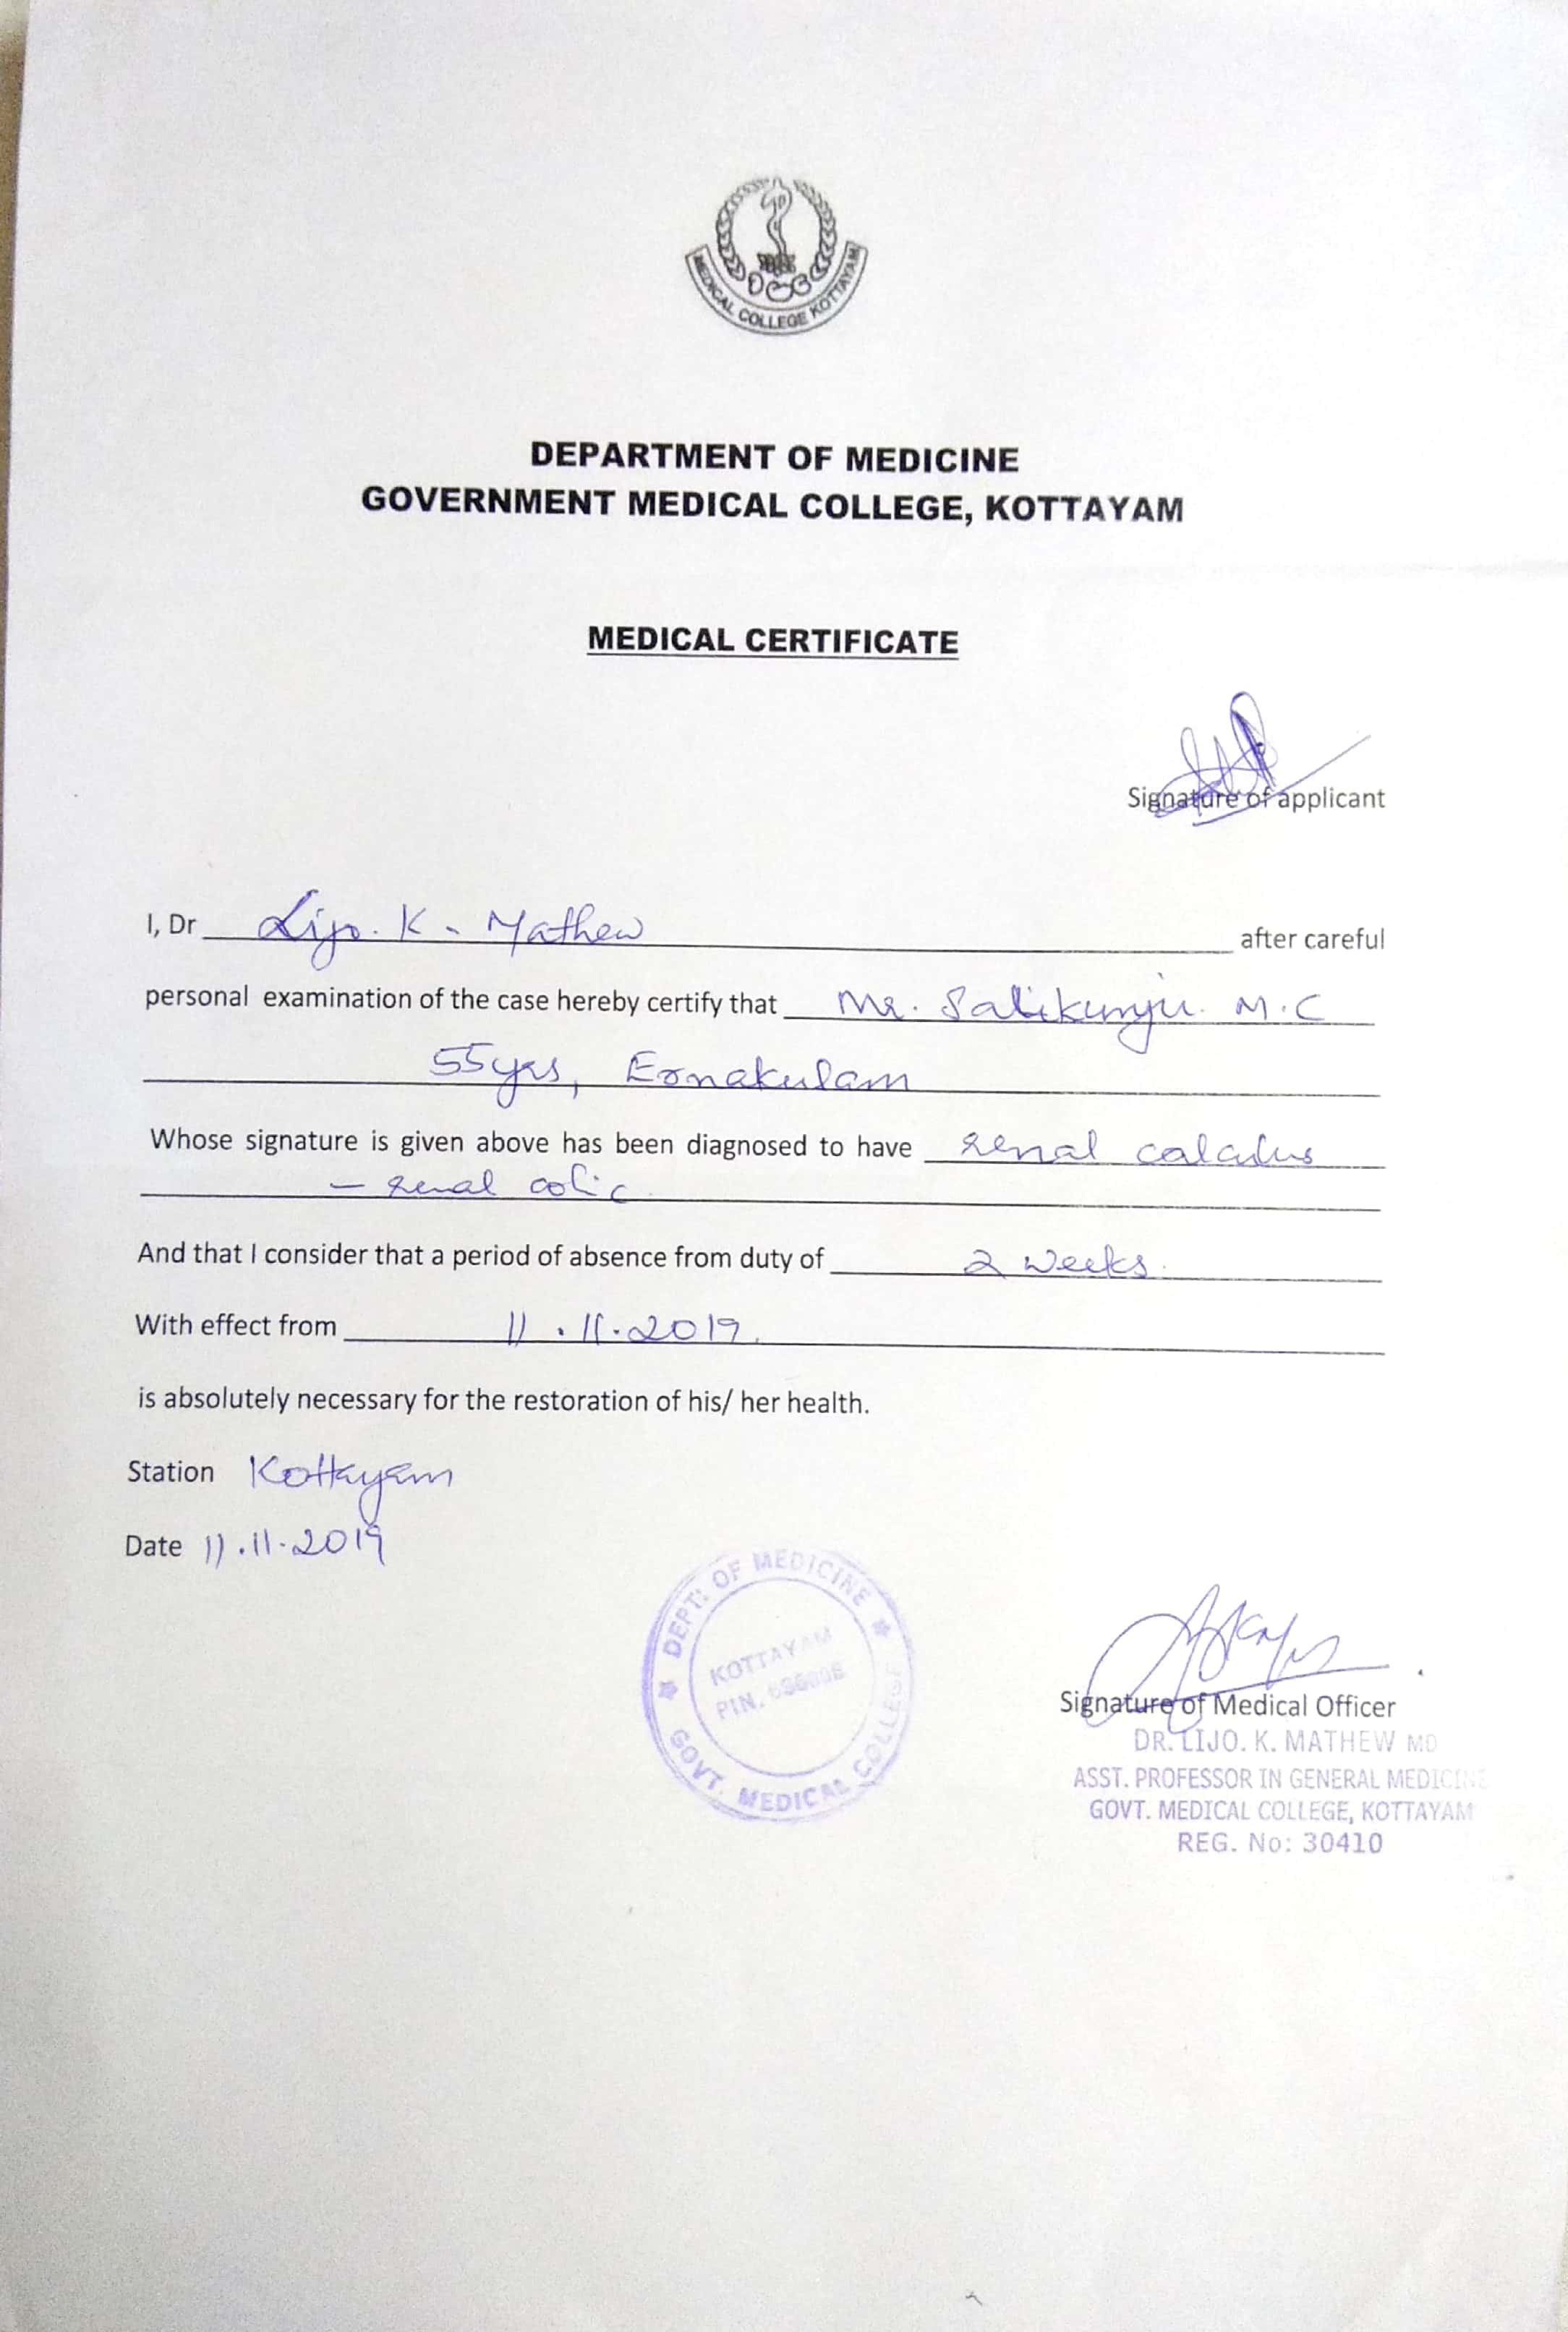 MEDICAL COLLEGE KOTTAYAM
DEPARTMENT OF MEDICINE
GOVERNMENT MEDICAL COLLEGE, KOTTAYAM
MEDICAL CERTIFICATE
Signature of applicant
I, Dr Lijo. K. Mathew after careful
personal examination of the case hereby certify that Mr. Salikunju. M.C
55yrs, Ernakulam
Whose signature is given above has been diagnosed to have renal calculus
- renal colic
And that I consider that a period of absence from duty of 2 weeks.
With effect from 11.11.2019.
is absolutely necessary for the restoration of his/ her health.
Station Kottayam
Date 11.11.2019
DEPT: OF MEDICINE
KOTTAYAM
PIN.
GOVT. MEDICAL COLLEGE
Signature of Medical Officer
DR. LIJO. K. MATHEW MD
ASST. PROFESSOR IN GENERAL MEDICINE
GOVT. MEDICAL COLLEGE, KOTTAYAM
REG. No: 30410